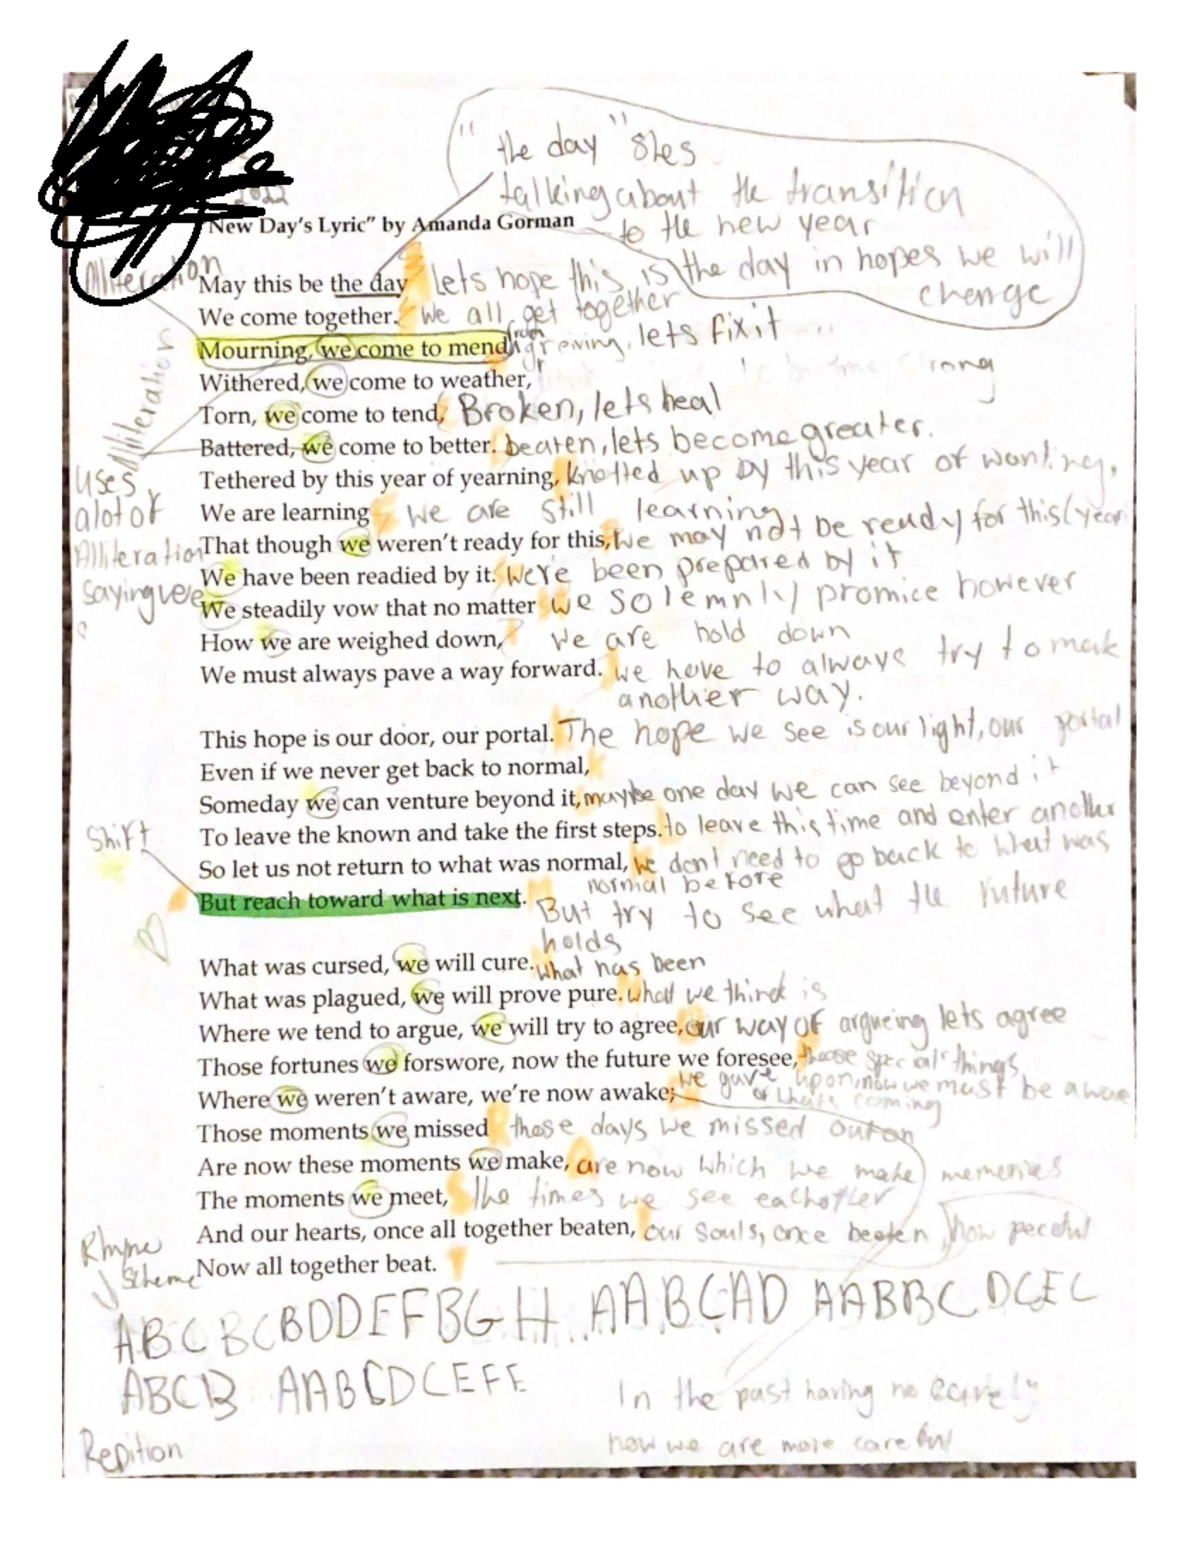 "the day" Shes
talking about the transition
to the new year
the day in hopes we will
change
2022
New Day's Lyric" by Amanda Gorman
Alliteration
May this be the day lets hope this is
We come together. We all get together
Mourning, we come to mend, from greiving, lets fix it
Withered, we come to weather, strong
Torn, we come to tend, Broken, lets heal
Alliteration
Battered, we come to better. beaten, lets become greater.
Tethered by this year of yearning, knotted up by this year of wanting,
uses
alot of
Alliteration
saying we
We are learning we are still learning
That though we weren't ready for this, we may not be ready for this (year
We have been readied by it. we're been prepared by it
We steadily vow that no matter we solemnly promice however
How we are weighed down, we are hold down
We must always pave a way forward. we have to always try to mak
another way.
This hope is our door, our portal. The hope we see is our light, our portal
Even if we never get back to normal,
Someday we can venture beyond it, maybe one day we can see beyond it
To leave the known and take the first steps. to leave this time and enter another
Shift
So let us not return to what was normal, we don't need to go back to what was
normal before
But reach toward what is next. But try to see what the future
holds
What was cursed, we will cure. what has been
What was plagued, we will prove pure. what we think is
Where we tend to argue, we will try to agree, our way of argueing lets agree
Those fortunes we forswore, now the future we foresee, those special things
Where we weren't aware, we're now awake; we gave upon, now we must be aware
of whats coming
Those moments we missed those days we missed out on
Are now these moments we make, are now which we make memeries
The moments we meet, the times we see eachother
And our hearts, once all together beaten, our souls, once beaten, now peceful
Now all together beat.
Rhyme
Scheme
ABCBCBDDEFFBGH AABCAD AABBCDCEC
ABCB AABCDCEFE
In the past having no
now we are more careful
Repition